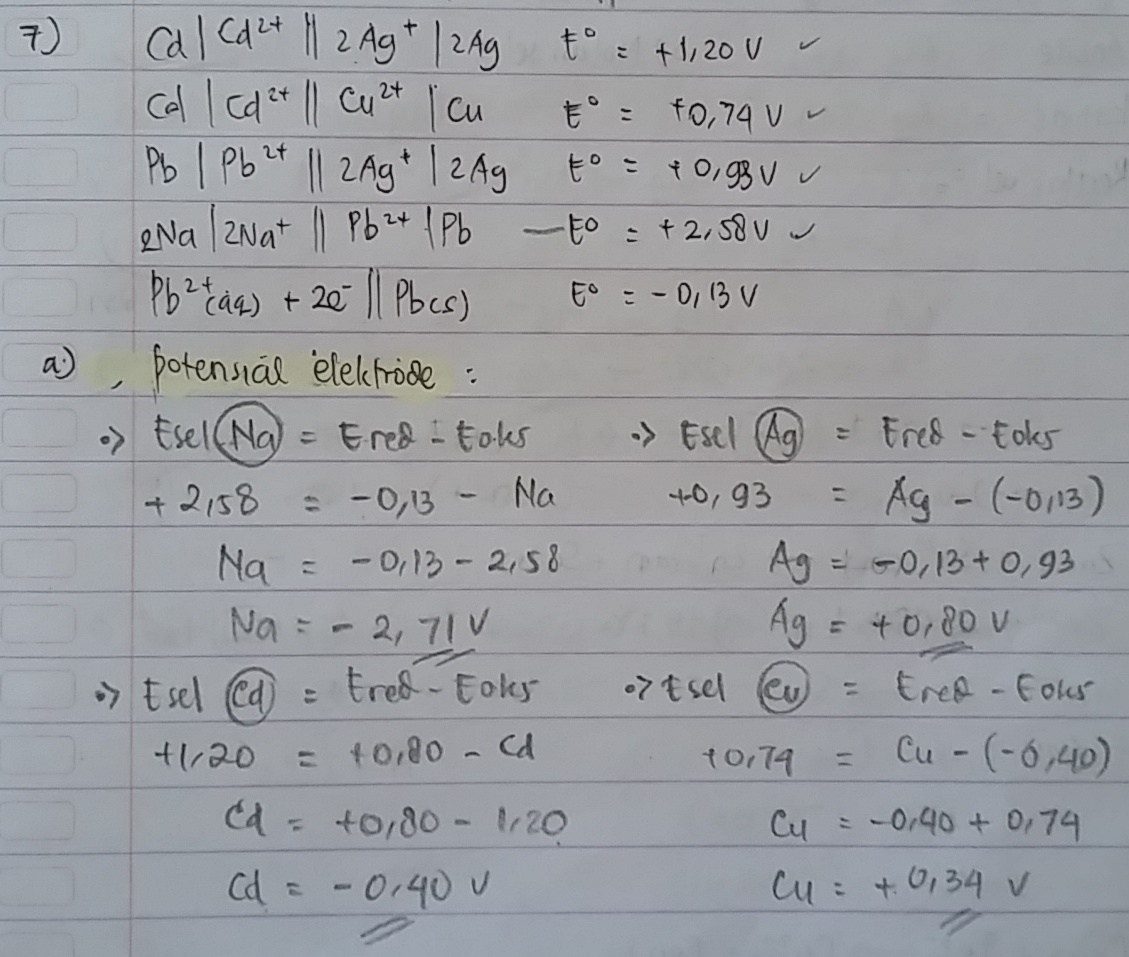 7) Cd | Cd²⁺ || 2Ag⁺ | 2Ag E° = +1,20 V ✓
Cd | Cd²⁺ || Cu²⁺ | Cu E° = +0,74 V ✓
Pb | Pb²⁺ || 2Ag⁺ | 2Ag E° = +0,93 V ✓
2Na | 2Na⁺ || Pb²⁺ | Pb — E° = +2,58 V ✓
Pb²⁺(aq) + 2e⁻ || Pb(s) E° = -0,13 V
a) , potensial elektrode :
•> Esel (Na) = Ered - Eoks
+2,58 = -0,13 - Na
Na = -0,13 - 2,58
Na = -2,71 V
•> Esel (Ag) = Ered - Eoks
+0,93 = Ag - (-0,13)
Ag = -0,13 + 0,93
Ag = +0,80 V
•> Esel (Cd) = Ered - Eoks
+1,20 = +0,80 - Cd
Cd = +0,80 - 1,20
Cd = -0,40 V
•> Esel (Cu) = Ered - Eoks
+0,74 = Cu - (-0,40)
Cu = -0,40 + 0,74
Cu = +0,34 V